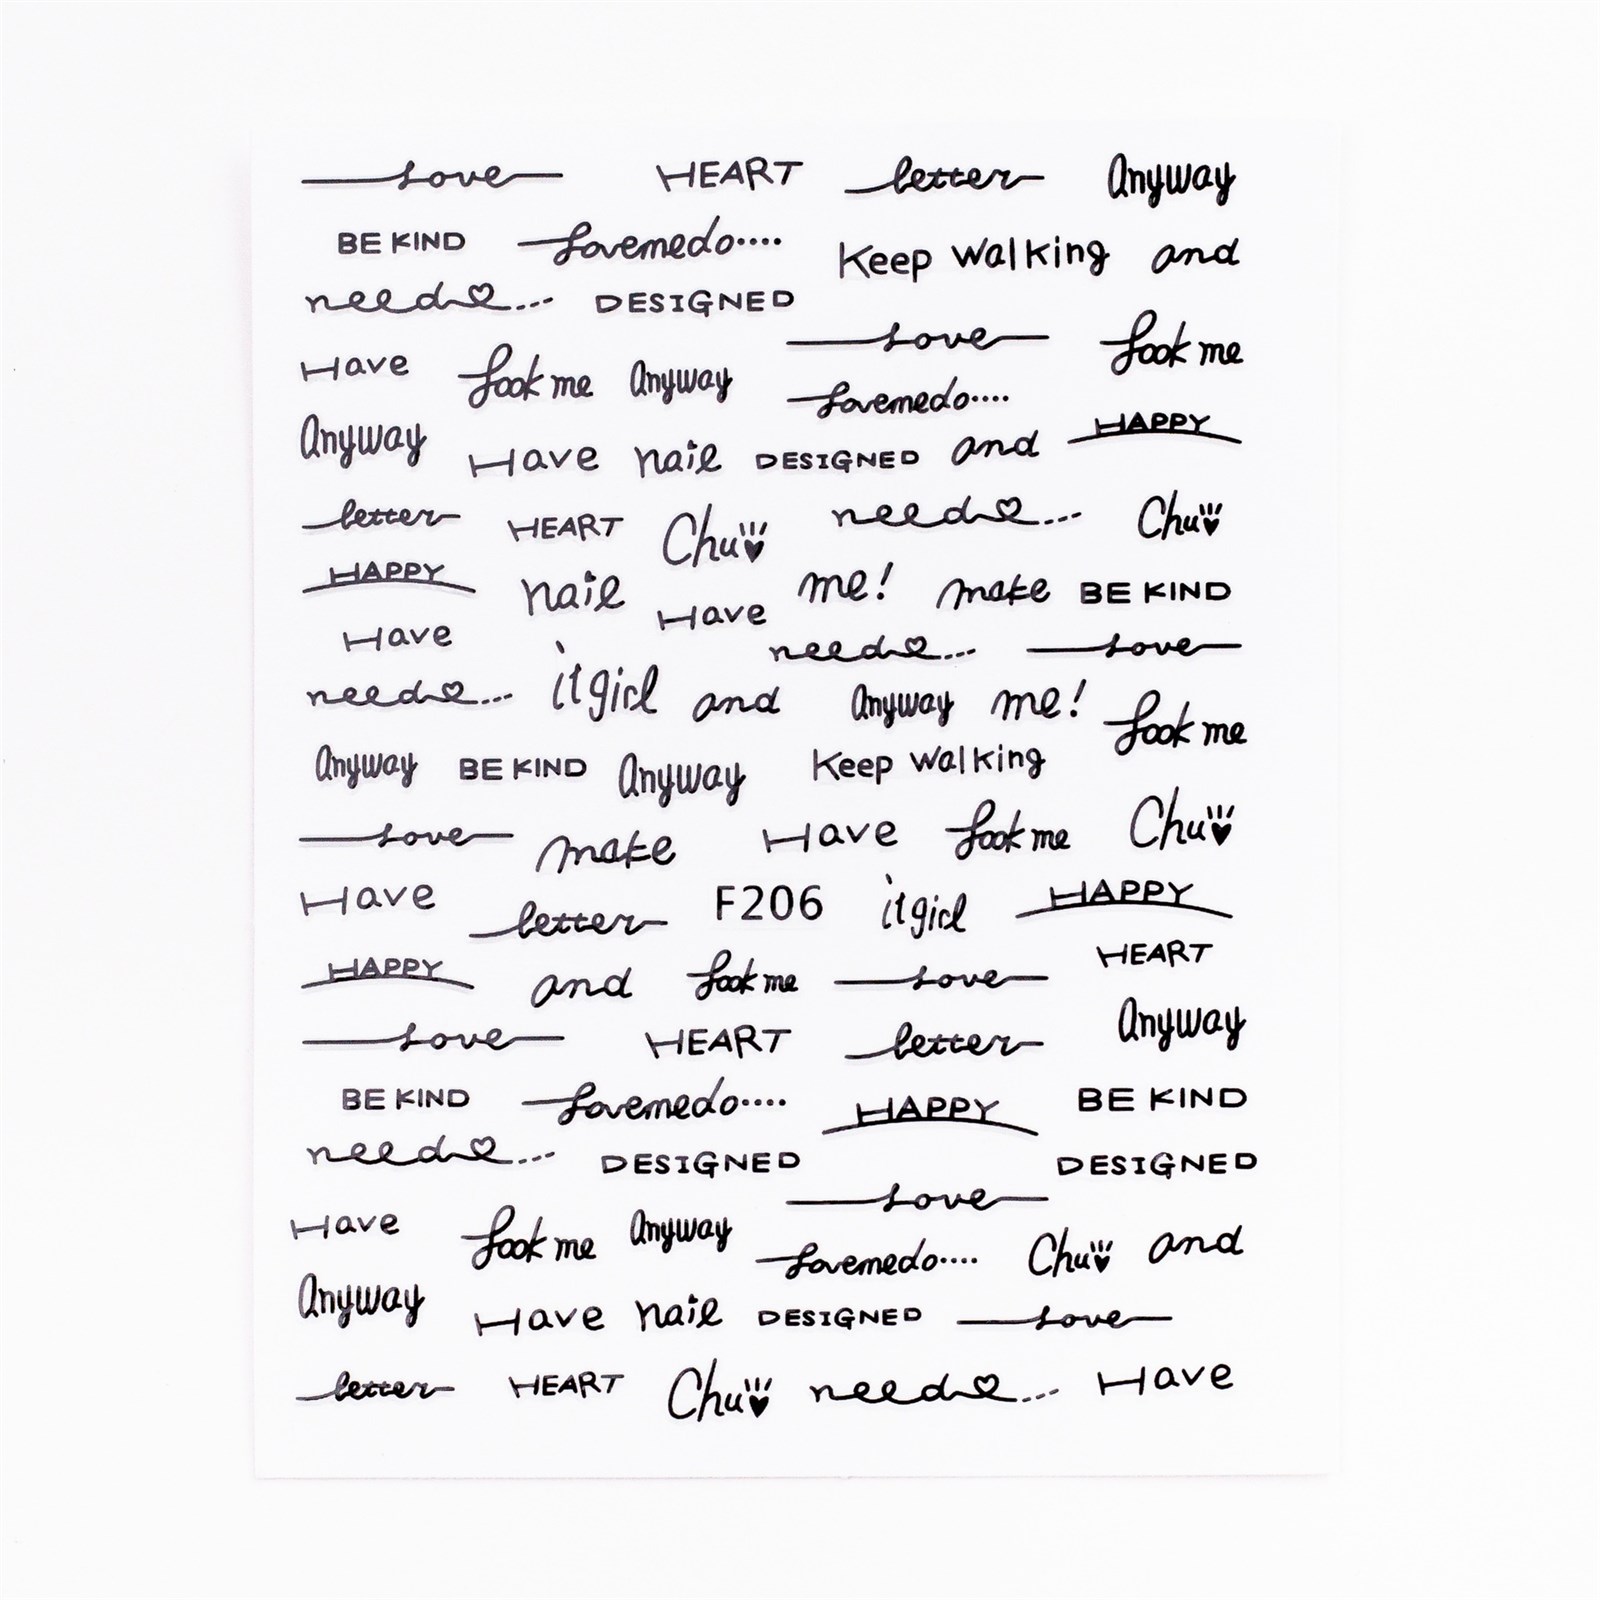 Love HEART letter Anyway
BE KIND Lovemedo.... Keep walking and
need... DESIGNED
Love Look me
Have Look me Anyway
Lovemedo....
Anyway Have nail DESIGNED and HAPPY
letter HEART Chu need... Chu
HAPPY nail Have me! make BE KIND
Have need... Love
need... it girl and Anyway me! Look me
Anyway BE KIND Anyway Keep walking
Love make Have Look me Chu
Have letter F206 it girl HAPPY
HAPPY and Look me Love HEART
Love HEART letter Anyway
BE KIND Lovemedo.... HAPPY BE KIND
need... DESIGNED DESIGNED
Love
Have Look me Anyway Lovemedo.... Chu and
Anyway Have nail DESIGNED Love
letter HEART Chu need... Have